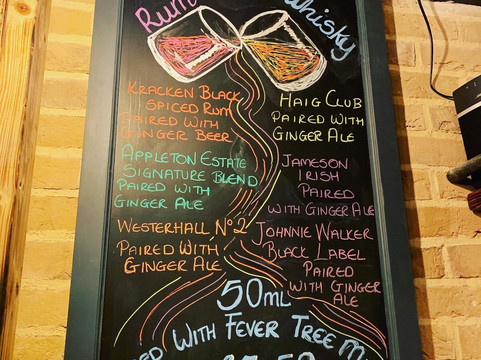 Rum
Whisky
KRACKEN BLACK
SPICED RUM
PAIRED WITH
GINGER BEER
APPLETON ESTATE
SIGNATURE BLEND
PAIRED WITH
GINGER ALE
WESTERHALL Nº2
PAIRED WITH
GINGER ALE
HAIG CLUB
PAIRED WITH
GINGER ALE
JAMESON
IRISH
PAIRED
WITH GINGER ALE
JOHNNIE WALKER
BLACK LABEL
PAIRED
WITH GINGER
ALE
50ML
WITH FEVER TREE